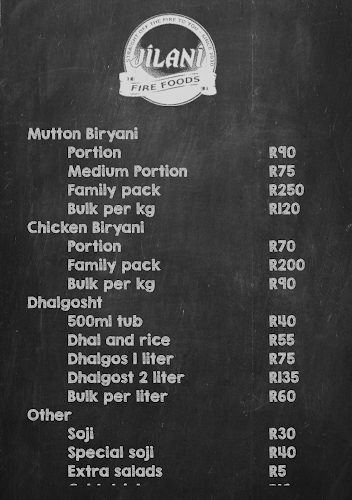 STRAIGHT OFF THE FIRE TO YOU
JILANI
FIRE FOODS
Mutton Biryani
Portion R90
Medium Portion R75
Family pack R250
Bulk per kg R120
Chicken Biryani
Portion R70
Family pack R200
Bulk per kg R90
Dhalgosht
500ml tub R40
Dhal and rice R55
Dhalgos 1 liter R75
Dhalgost 2 liter R135
Bulk per liter R60
Other
Soji R30
Special soji R40
Extra salads R5